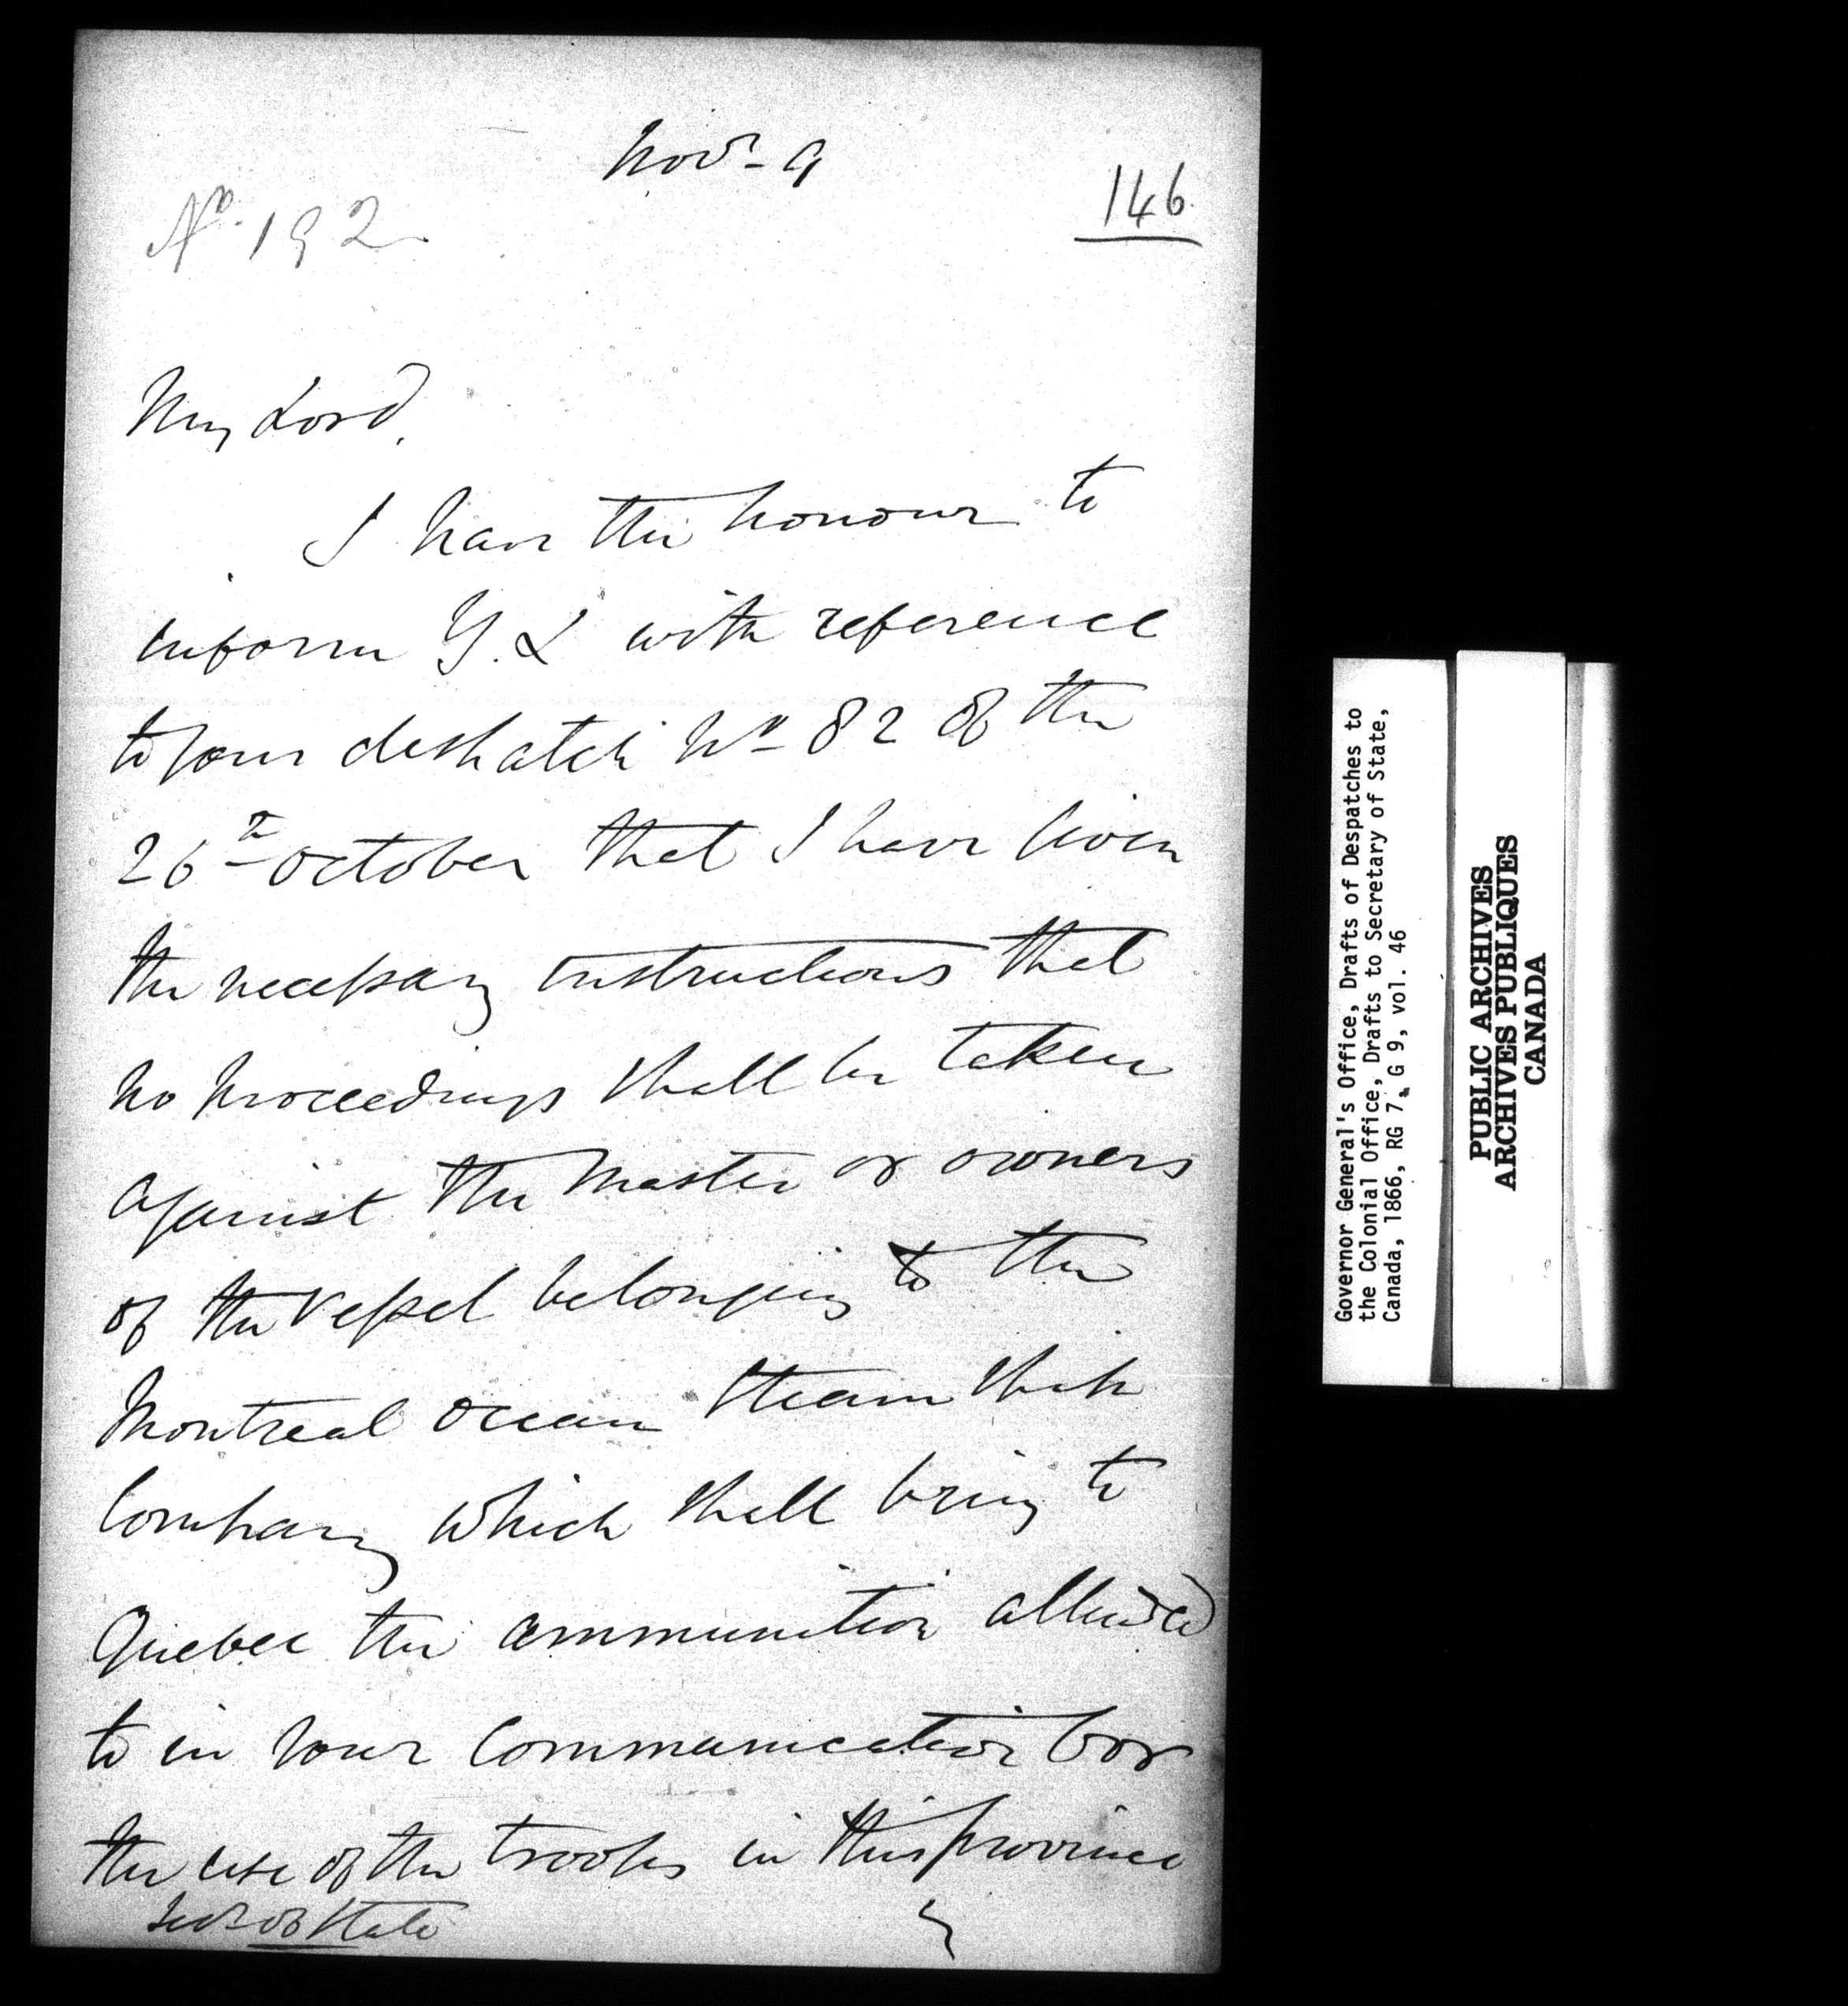 Novr - 9
146
No. 192
My Lord,
I have the honour to
inform Y. L with reference
to your despatch No 82 of the
26th October that I have given
the necessary instructions that
no proceedings shall be taken
against the Master or owners
of the Vessel belonging to the
Montreal Ocean Steam Ship
Company which shall bring to
Quebec the ammunition alluded
to in your Communication for
the use of the troops in this province
Secr of State
Governor General's Office, Drafts of Despatches to
the Colonial Office, Drafts to Secretary of State,
Canada, 1866, RG 7, G 9, vol. 46
PUBLIC ARCHIVES
ARCHIVES PUBLIQUES
CANADA